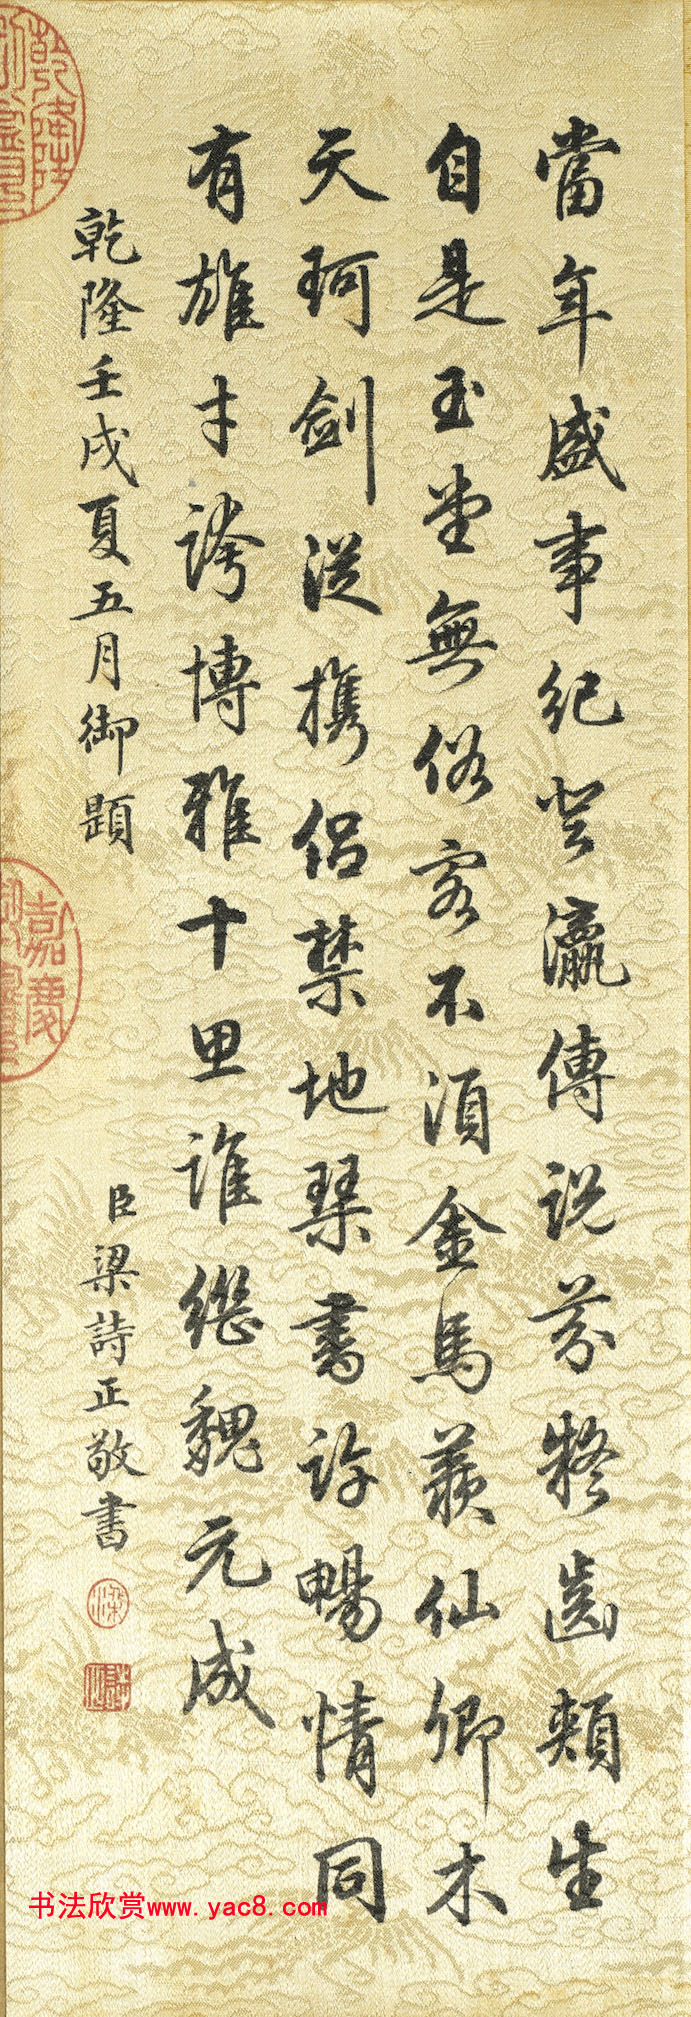 當年盛事紀登瀛傳說芬凝齒頰生
自是玉堂無俗客不須金馬羨仙卿木
天珂劍從携侶禁地琹書許暢情同
有雄才誇博雅十思誰繼魏元成
乾隆壬戌夏五月御題
臣梁詩正敬書
乾隆
嘉慶
书法欣赏www.yac8.com